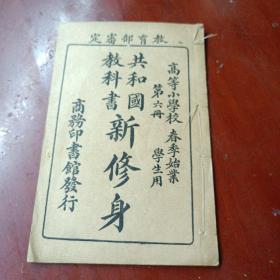 教育部審定
高等小學校 春季始業
第六冊 學生用
共和國
教科書
新修身
商務印書館發行